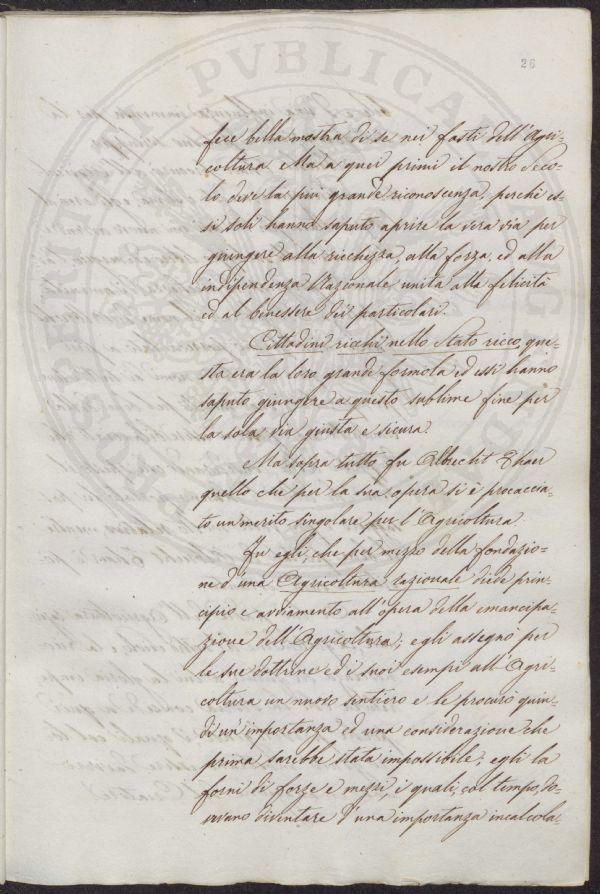 PVBLICAE
PROSPERITATI
26
fece bella mostra di se nei fasti dell'Agri-
coltura. Ma a quei primi il nostro Seco-
lo deve la più grande riconoscenza, perchè es-
si soli hanno saputo aprire la vera via per
giungere alla ricchezza, alla forza, ed alla
indipendenza Nazionale unita alla felicità
ed al benessere dei particolari.
Cittadini ricchi nello Stato ricco, que-
sta era la loro grande formola ed essi hanno
saputo giungere a questo sublime fine per
la sola via giusta e sicura.
Ma sopra tutto fu Albrecht Thaer
quello che per la sua opera si è procaccia-
to un merito singolare per l'Agricoltura.
Fu egli, che per mezzo della fondazio-
ne d'una Agricoltura razionale diede prin-
cipio e avviamento all'opera della emancipa-
zione dell'Agricoltura; egli assegno per
le sue dottrine ed i suoi esempi all'Agri-
coltura un nuovo sentiero e le procurò quin-
di un'importanza ed una considerazione che
prima sarebbe stata impossibile; egli la
fornì di forze e mezzi, i quali, col tempo, do-
vevano diventare d'una importanza incalcola-